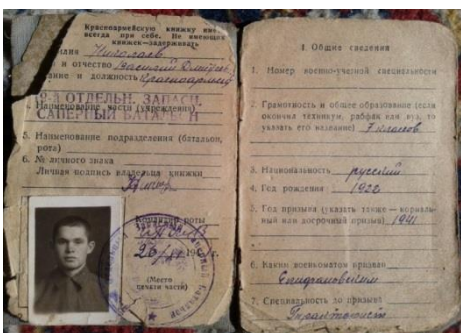 Красноармейскую книжку иметь
всегда при себе. Не имеющих
книжек—задерживать
Николаев
и отчество Василий
звание и должность Красноармеец
9-Й ОТДЕЛЬН. ЗАПАСН.
Наименование части (учреждения)
САПЕРНЫЙ БАТАЛЬОН
5. Наименование подразделения (батальон,
рота)
6. № личного знака
Личная подпись владельца книжки
Командир роты
194 г.
(Место
печати части)
I. Общие сведения
1. Номер военно-учетной специальности
2. Грамотность и общее образование (если
окончил техникум, рабфак или вуз, то
указать его название) 7 классов
3. Национальность русский
4. Год рождения 1922
5. Год призыва (указать также — нормаль-
ный или досрочный призыв) 1941
6. Каким военкоматом призван
Епифановским
7. Специальность до призыва
Тракторист